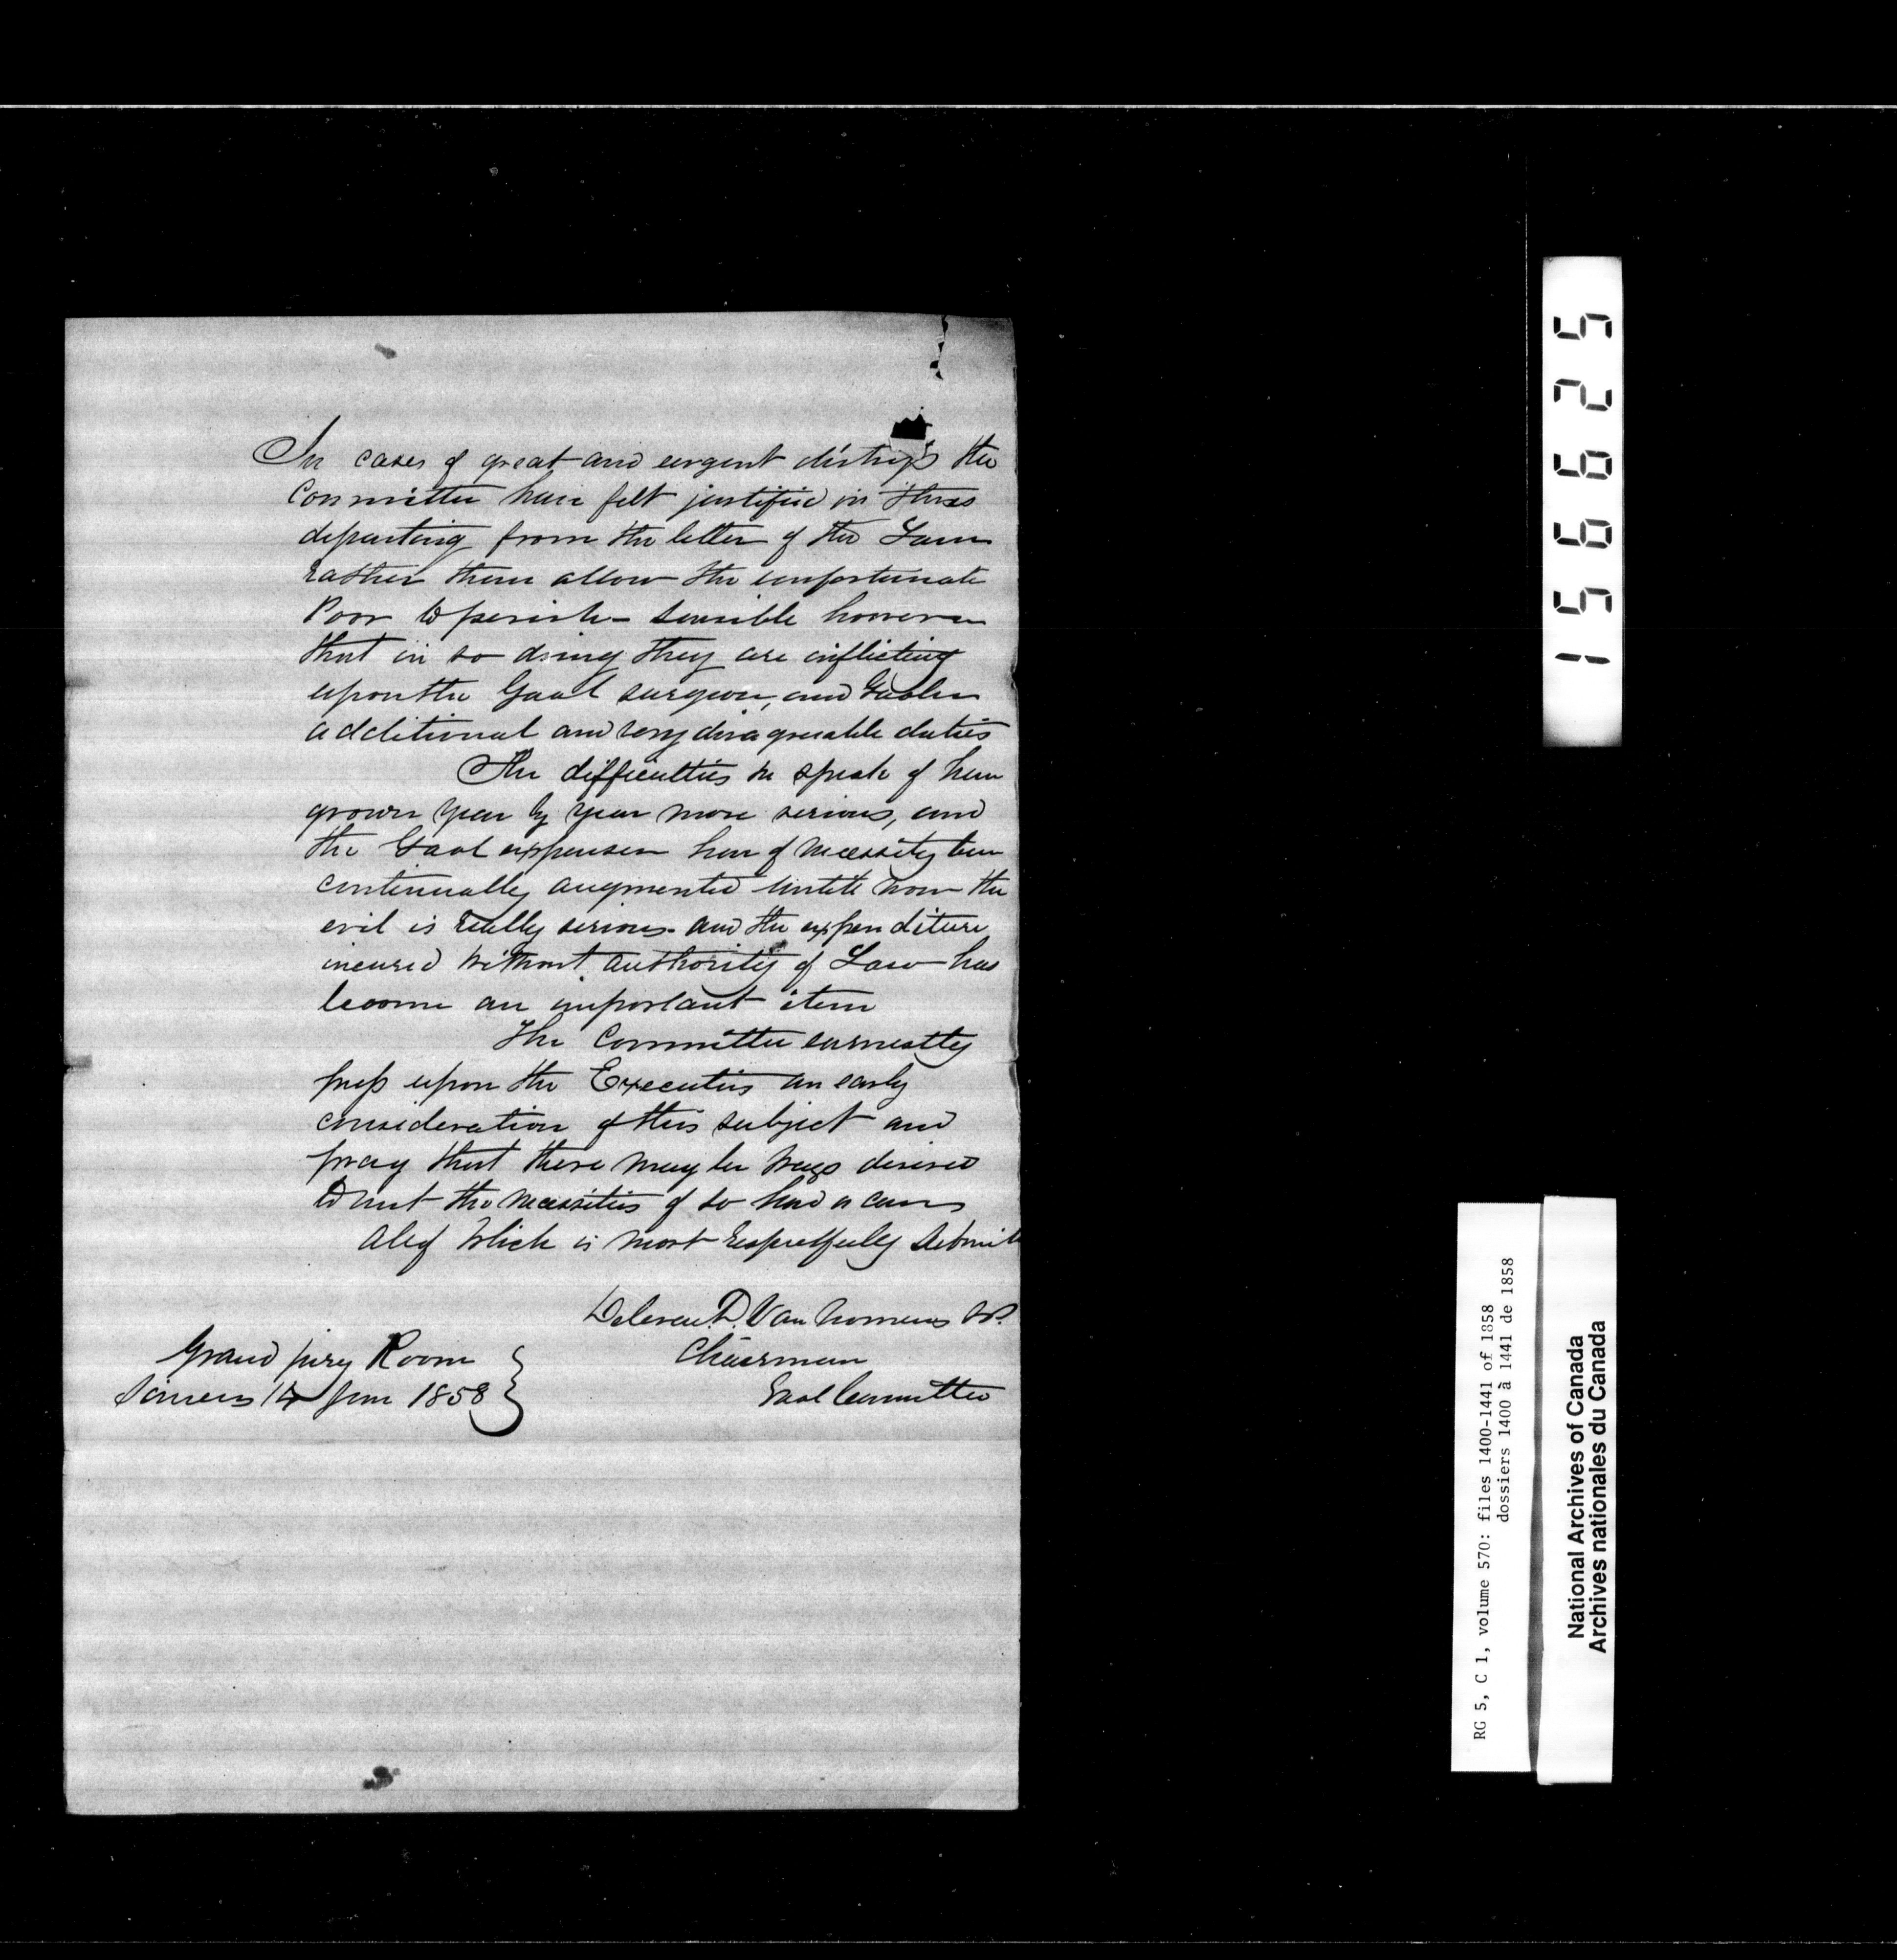 In cases of great and urgent distress the
Committee have felt justified in thus
departing from the letter of the Law
rather than allow the unfortunate
Poor to perish - sensible however
that in so doing they are inflicting
upon the Gaol surgeon, and Gaoler
additional and very disagreeable duties
The difficulties we speak of have
grown year by year more serious, and
the Gaol expenses have of necessity been
continually augmented untill now the
evil is really serious - and the expenditure
incured without authority of Law has
become an important item
The Committee earnestly
press upon the Executive an early
consideration of this subject and
pray that there may be ways devised
to meet the necessities of so hard a case
All of which is most respectfully Submit
D. Van Norman
Chairman
Gaol Committee
Grand jury Room
Simcoe 14 June 1858
156625
RG 5, C 1, volume 570: files 1400-1441 of 1858
dossiers 1400 à 1441 de 1858
National Archives of Canada
Archives nationales du Canada